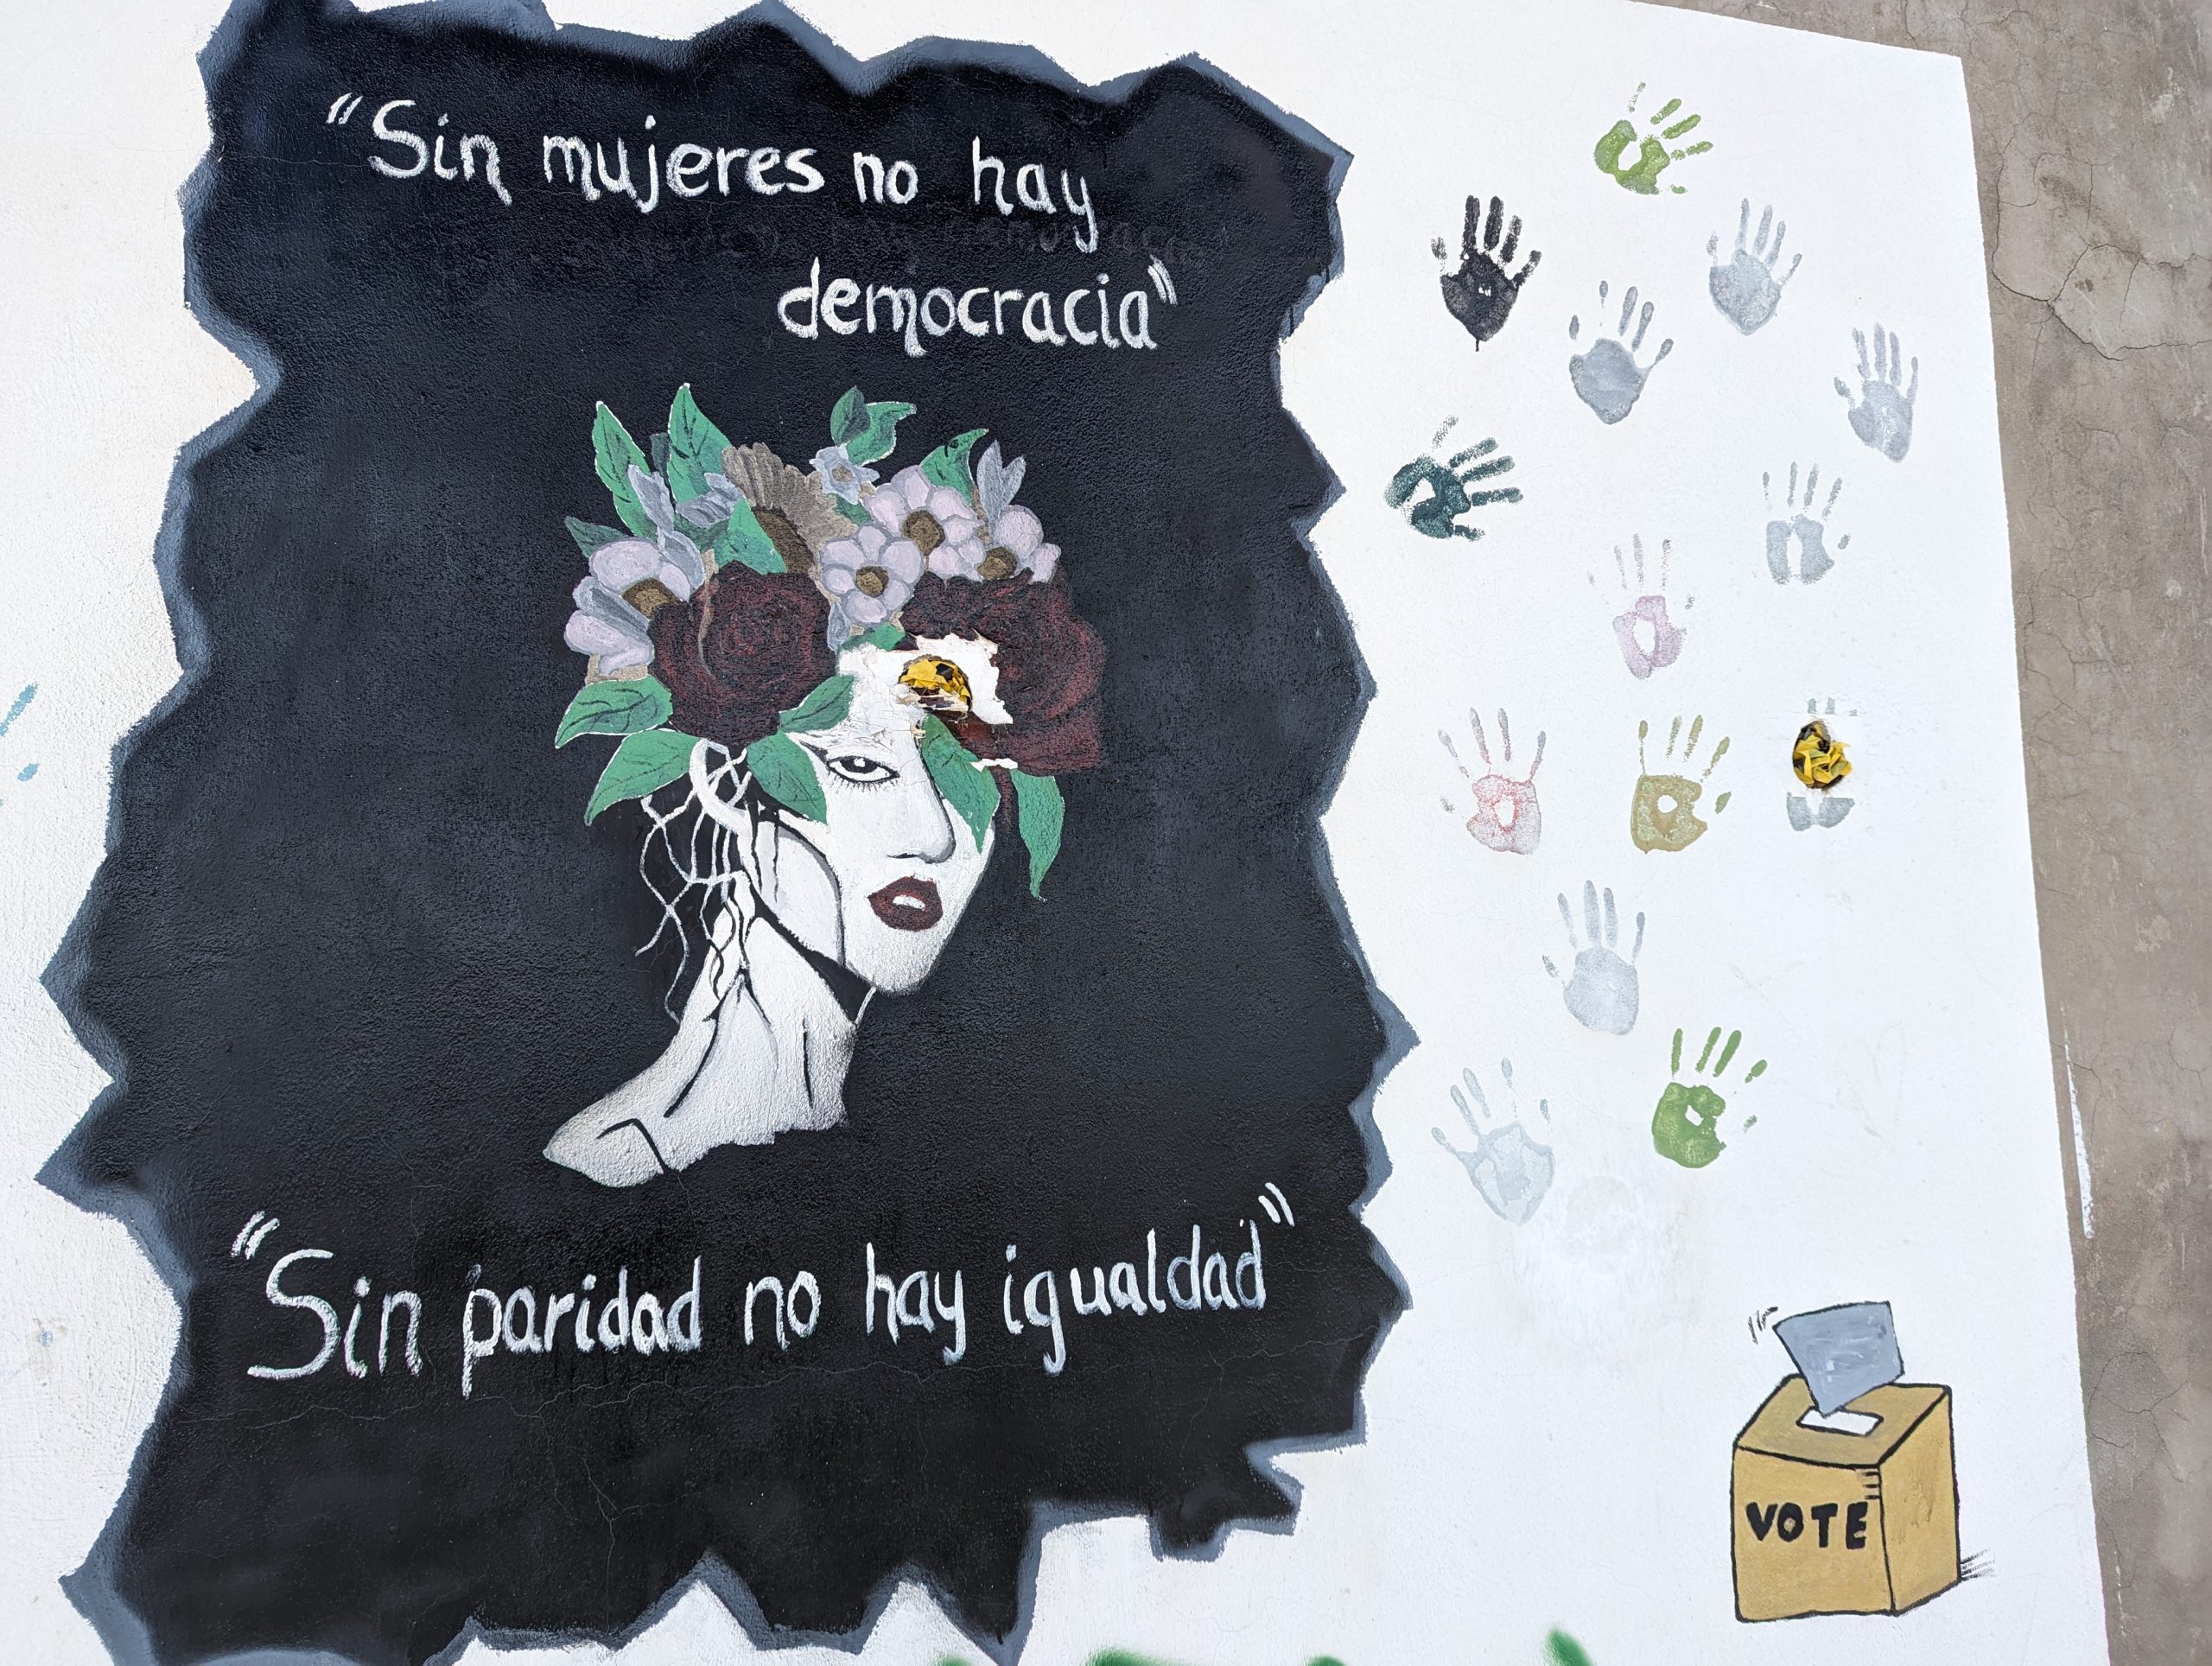 "Sin mujeres no hay
democracia"
"Sin paridad no hay igualdad"
VOTE